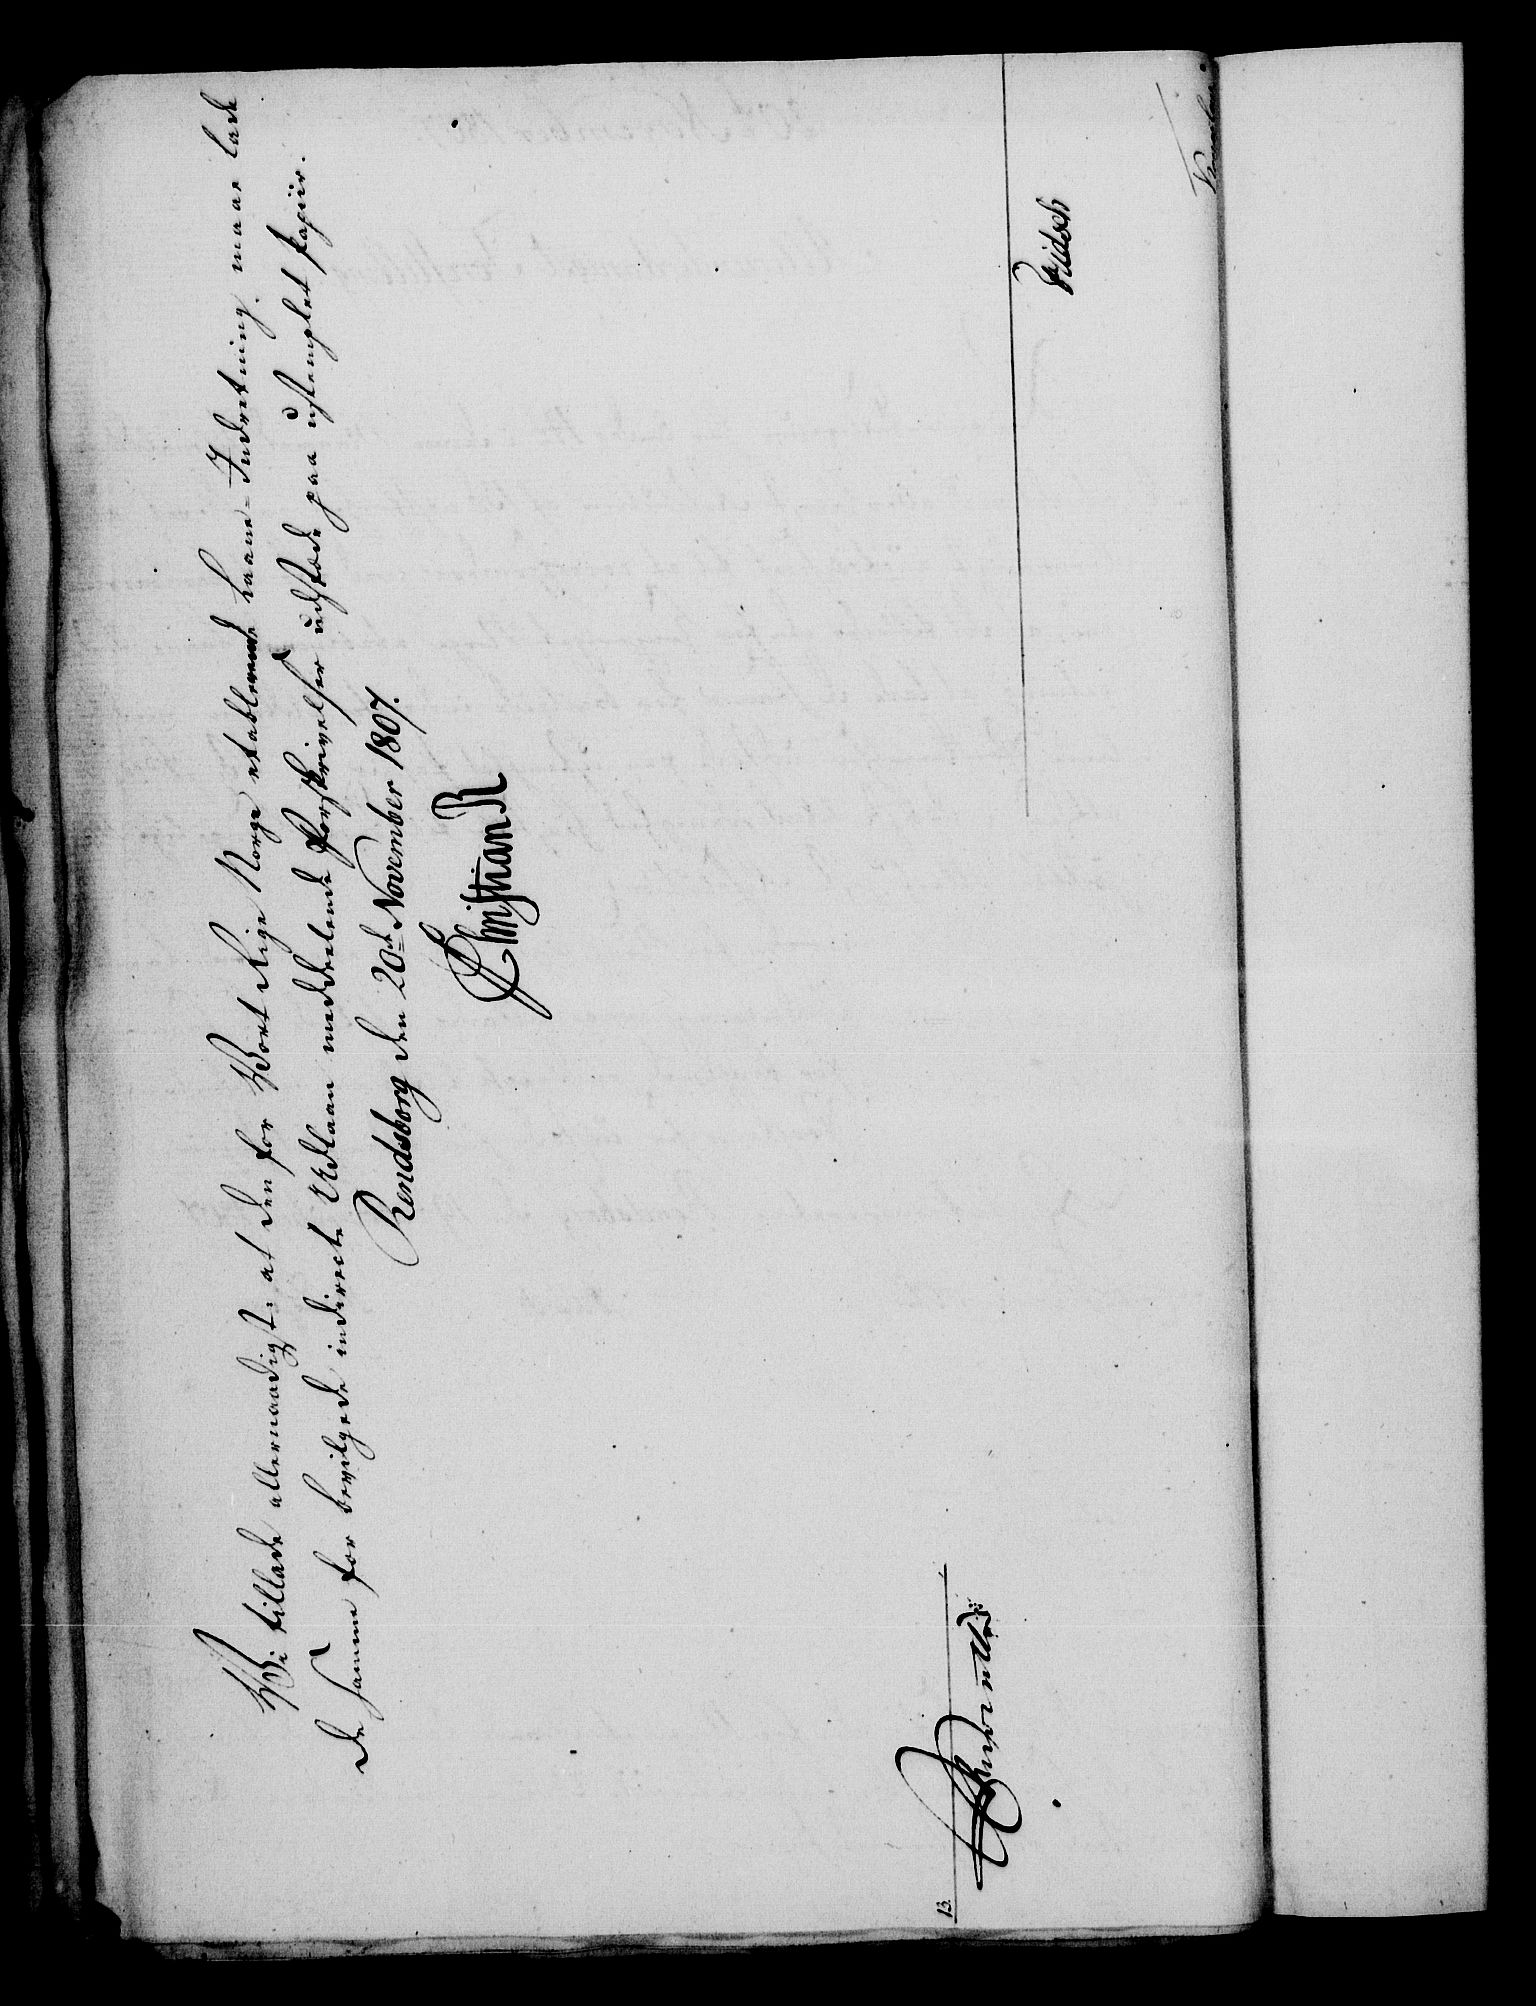 Vi tillade allernaadigst, at den for Vort Rige Norge etablerende Laane-Indretning maae lade
de samme for bevilgede indirecte Udlaan meddelende Forskrivelser udstæde paa ustemplet Papiir.
Rendsborg den 20de November 1807.
Christian R
13.